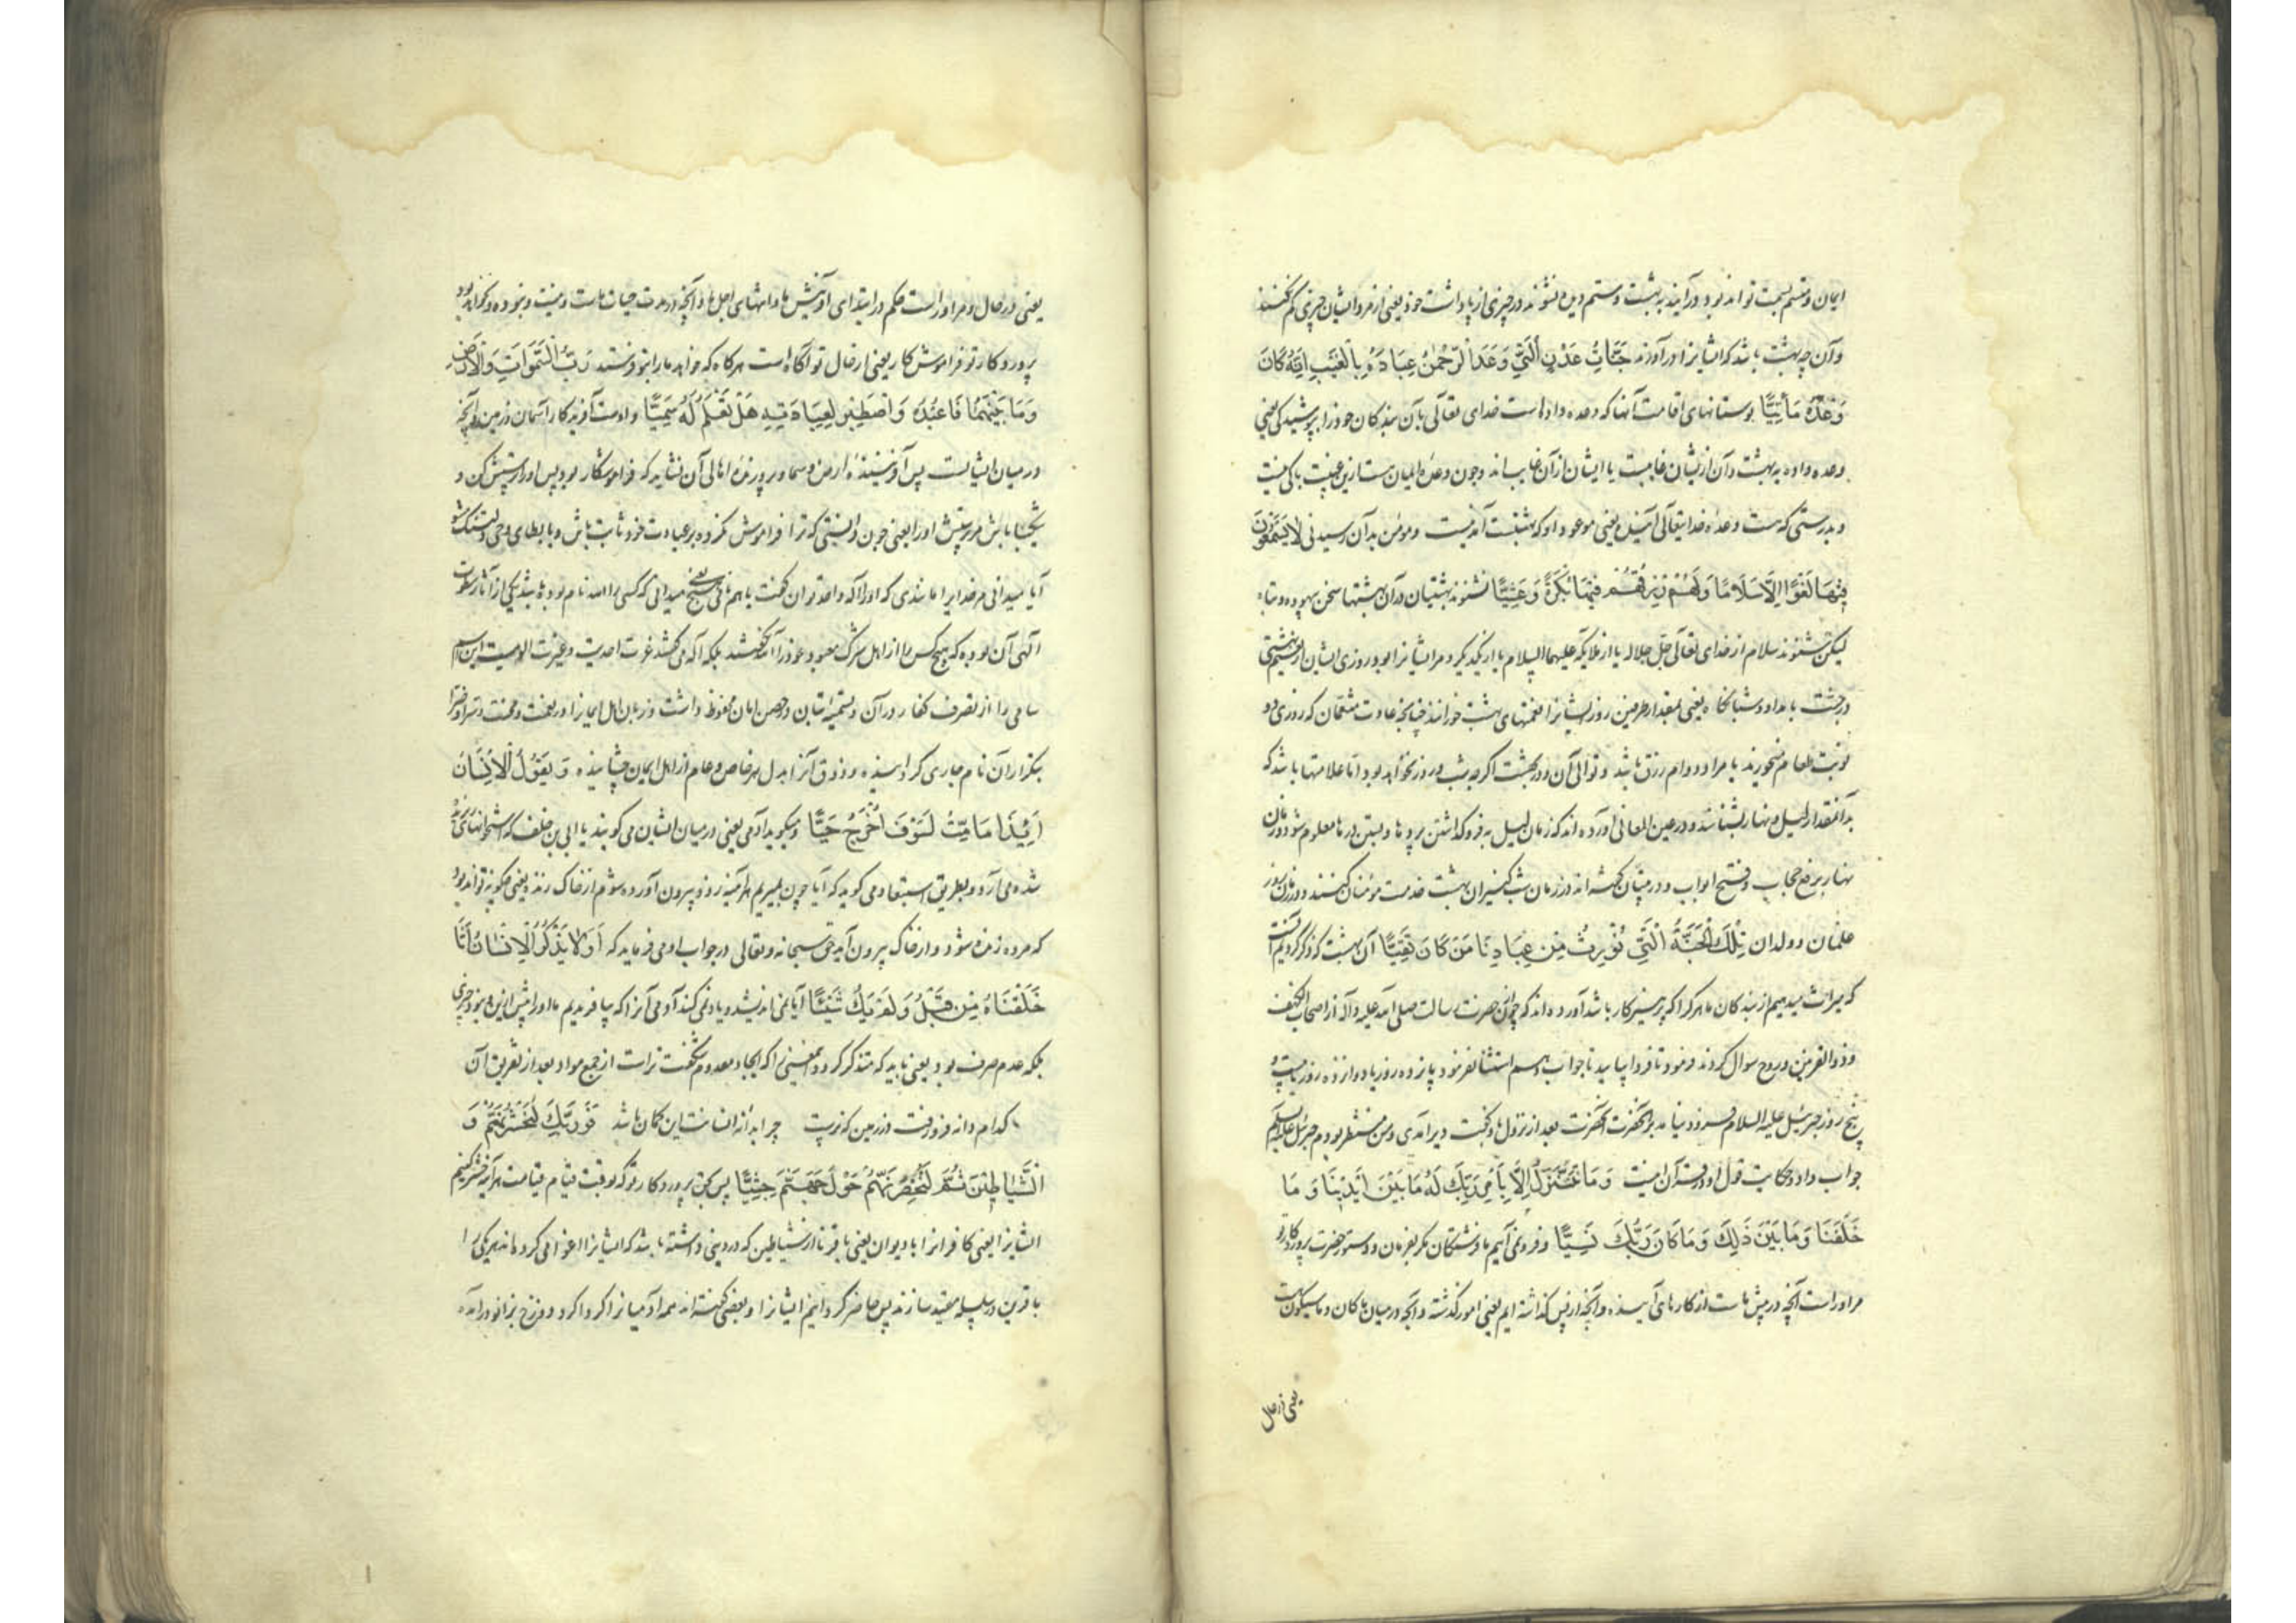 ایمان و قسم بسمت تواند بود درآیند به بهشت و ستم دیده نشوند در چیزی از پاداشت خود یعنی از مزد ایشان چیزی کم نکنند
و آن چه بهشت باشد که ایشانرا درآورند جَنَّاتِ عَدْنٍ الَّتِي وَعَدَ الرَّحْمٰنُ عِبَادَهُ بِالْغَيْبِ اِنَّهُ كَانَ
وَعْدُهُ مَأْتِيًّا بوستانهای اقامت آنها که وعده داده است خدای تعالی بآن بندکان خود را بپوشیدکی یعنی
وعده داده به بهشت و آن ازیشان غایبست یا ایشان از آن غایب‌اند و چون وعده
و بدرستی که هست وعده خدایتعالی آینده یعنی موعود او که بهشتست آمدنیست و مؤمن بدآن رسیدنی لَا يَسْمَعُونَ
فِيْهَا لَغْوًا اِلَّا سَلَامًا وَلَهُمْ رِزْقُهُمْ فِيْهَا بُكْرَةً وَعَشِيًّا نشنوند بهشتیان در آن بهشتها سخن بیهوده و تباه
لیکن شنوند سلام از خدای تعالی جل جلاله یا از ملایکه علیهما السلام یا از یکدیکر و مر ایشانرا بود روزی ایشان
در بهشت بامداد و شبانکاه یعنی بمقدار طرفین روز ایشانرا نعمتهای بهشت خورانند چنانچه عادت متنعمان که روزی دو
نوبت طعام میخورند یا مراد دوام رزق باشد و توالی آن و در بهشت اکرچه شب و روز نخواهد بود اما علامتها باشد که
بدآن مقدار لیل و نهار بشناسند و در عین المعانی آورده‌اند که زمان لیل به فروکذاشتن پردها و بستن درها معلوم شود و زمان
نهار برفع حجاب و فتح ابواب و در تبیان کفته‌اند در زمان شب کنیزان بهشت خدمت مؤمنان کنند و در زمان روز
غلمان و ولدان تِلْكَ الْجَنَّةُ الَّتِي نُوْرِثُ مِنْ عِبَادِنَا مَنْ كَانَ تَقِيًّا آن بهشت که ذکر کردیم آنست
که میراث میدهیم از بندکان ما هرکرا که پرهیزکار باشد آورده‌اند که چون حضرت رسالت صلی الله علیه و آله از اصحاب الکهف
و ذوالقرنین و روح سوال کردند فرمود تا فردا بیایید تا جواب دهم استثنا نفرمود پانزده روز یا دوازده روز یا بیست و
پنج روز جبرئیل علیه السلام فرود نیامد بر آنحضرت آنحضرت بعد از نزول او کفت دیر آمدی و من منتظر بودم جبرئیل علیه السلام
جواب داد و حکایت قول او در قرآن اینست وَمَا نَتَنَزَّلُ اِلَّا بِاَمْرِ رَبِّكَ لَهُ مَا بَيْنَ اَيْدِيْنَا وَمَا
خَلْفَنَا وَمَا بَيْنَ ذٰلِكَ وَمَا كَانَ رَبُّكَ نَسِيًّا و فرو نمی آییم ما فرشتکان مکر بفرمان و دستور حضرت پروردکار تو
مر او راست آنچه در پیش ماست از کارهای آینده و آنچه از پس کذاشته‌ایم یعنی امور کذشته و آنچه در میان ما کان و ما سیکون است
یعنی در حال
یعنی در حال و مر او راست حکم در ابتدای آفرینش ما و انتهای اجل ما و آنچه در مدت حیات ماست و نیست و نبوده و نخواهد بود
پروردکار تو فراموش کار یعنی از حال تو آکاه است هرکاه که خواهد ما را بتو فرستد رَبُّ السَّمٰوَاتِ وَالْاَرْضِ
وَمَا بَيْنَهُمَا فَاعْبُدْهُ وَاصْطَبِرْ لِعِبَادَتِهِ هَلْ تَعْلَمُ لَهُ سَمِيًّا و اوست آفریدکار آسمان و زمین و آنچه
در میان ایشانست پس آفریننده ارض و سما و پرورنده اهالی آن نشاید که فراموشکار بود پس او را پرستش کن و
شکیبا باش مر پرستش او را یعنی چون دانستی که ترا فراموش نکرده بر عبادت خود ثابت باش و بابطای وحی دلتنک مشو
آیا میدانی مر خدایرا مانندی که او را اله واحد توان کفت یا هم نامی یعنی هیچ میدانی که کسی را الله نام بوده باشد یکی از آثار سطوت
الهی آن بوده که هیچ کس را از اهل شرک معبود خود را الله نکفتند بلکه اله می کفتند غیرت احدیت و عزت الوهیت این اسم
سامی را از تصرف کفار در آن و تسمیه بتان در حصن امان محفوظ داشت و زبان اهل ایمانرا در نعمت و محنت و سرا و ضرا
بتکرار آن نام جاری کردانیده و ذوق آنرا بدل هر خاص و عام از اهل ایمان چشانیده وَيَقُوْلُ الْاِنْسَانُ
اَئِذَا مَا مِتُّ لَسَوْفَ اُخْرَجُ حَيًّا و میکوید آدمی یعنی در میان ایشان می کویند یا ابی بن خلف که استخوانهای
شده می آرد و بطریق استبعاد می کوید که آیا چون بمیریم هر آینه زود بیرون آورده شوم از خاک زنده یعنی چکونه تواند بود
که مرده زنده شود و از خاک بیرون آید حق سبحانه و تعالی در جواب او می فرماید که اَوَلَا يَذْكُرُ الْاِنْسَانُ اَنَّا
خَلَقْنَاهُ مِنْ قَبْلُ وَلَمْ يَكُ شَيْئًا آیا نمی اندیشد و یاد نمی کند آدمی آنرا که بیافریدیم ما او را پیش ازین و نبود چیزی
بلکه عدم صرف بود یعنی باید که متذکر کردد بمعنیی که ایجاد معدوم شکفت تر است از جمع مواد بعد از تفریق آن
کدام دانه فرو رفت در زمین که نرست چرا بدانه انسانت این کمان باشد فَوَرَبِّكَ لَنَحْشُرَنَّهُمْ وَ
الشَّيَاطِيْنَ ثُمَّ لَنُحْضِرَنَّهُمْ حَوْلَ جَهَنَّمَ جِثِيًّا پس بحق پروردکار تو که بوقت قیام قیامت هر آینه حشر کنیم
ایشانرا یعنی کافرانرا با دیوان یعنی با قرنا از شیاطین که در دنیی داشته باشد که ایشانرا اغوا می کرده‌اند هریکی را
با قرین در سلسله مقید سازند پس حاضر کردانیم ایشانرا و بعضی کفته‌اند همه آدمیانرا کرداکرد دوزخ بزانو درآمده